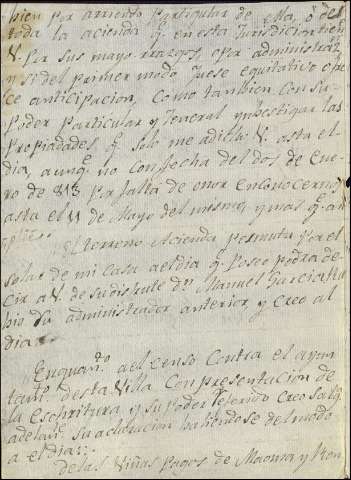 bien por arriendo particular de ella, ó de
toda la acienda q. en esta Jurisdiccion tien
V. por sus mayordazgos, o por administraz.
y si del primer modo q. fuese equitativo ofre
ce anticipacion, como tambien con su
Poder particular y General ynbestigar las
Propiadades, q. solo me adicto V. asta el
dia, aunq. no con fecha del dos de Ene
ro de 813 por falta de
asta el 11 de Mayo del mesmo, y mas q. an
El terreno ó Acienda permuta por el
solar de mi casa ael dia q. poseo podra de
cir a V. de su disfrute Dn. Manuel Garcia Ru
bio su administrador anterior, y creo al
dia
En quan.o ael censo contra el ayun
tam.to desta Villa con presentacion de
la Eschritura y su Poder referido creo salg.
adelan.te su aclaracion baliendose del modo
a el dia
De las Viñas pagos de Maoma, y Ron